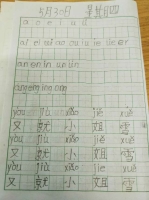 5月30日 星期四
a o e i u ü
ai ei ui ao ou iu ie üe er
an en in un ün
ang eng ing ong
yòu jiù xiǎo jiě xuě
又 就 小 姐 雪
yòu jiù xiǎo jiě xuě
又 就 小 姐 雪
yòu jiù xiǎo jiě xuě
又 就 小 姐 雪